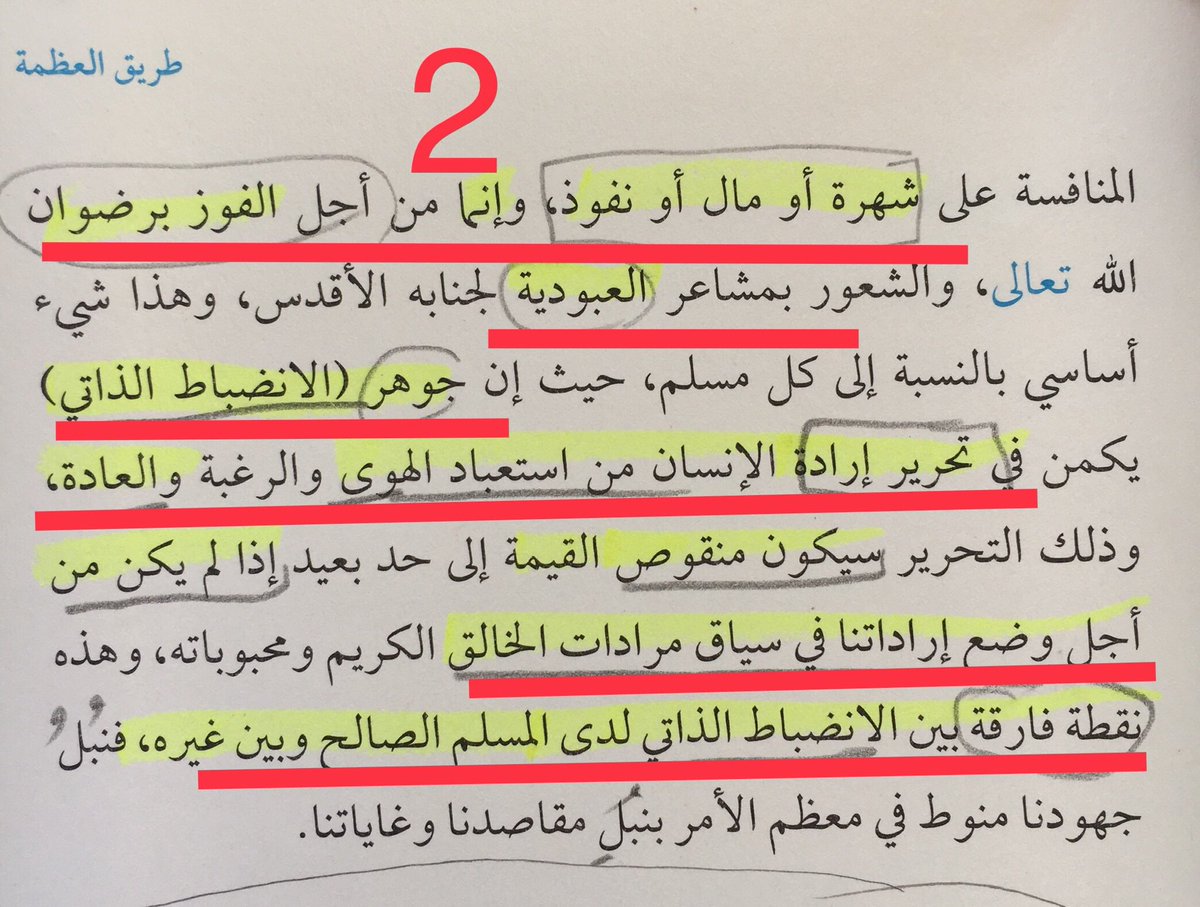 طريق العظمة
2
المنافسة على شهرة أو مال أو نفوذ، وإنما من أجل الفوز برضوان
الله تعالى، والشعور بمشاعر العبودية لجنابه الأقدس، وهذا شيء
أساسي بالنسبة إلى كل مسلم، حيث إن جوهر (الانضباط الذاتي)
يكمن في تحرير إرادة الإنسان من استعباد الهوى والرغبة والعادة،
وذلك التحرير سيكون منقوص القيمة إلى حد بعيد إذا لم يكن من
أجل وضع إراداتنا في سياق مرادات الخالق الكريم ومحبوباته، وهذه
نقطة فارقة بين الانضباط الذاتي لدى المسلم الصالح وبين غيره، فنبُل
جهودنا منوط في معظم الأمر بنبلِ مقاصدنا وغاياتنا.